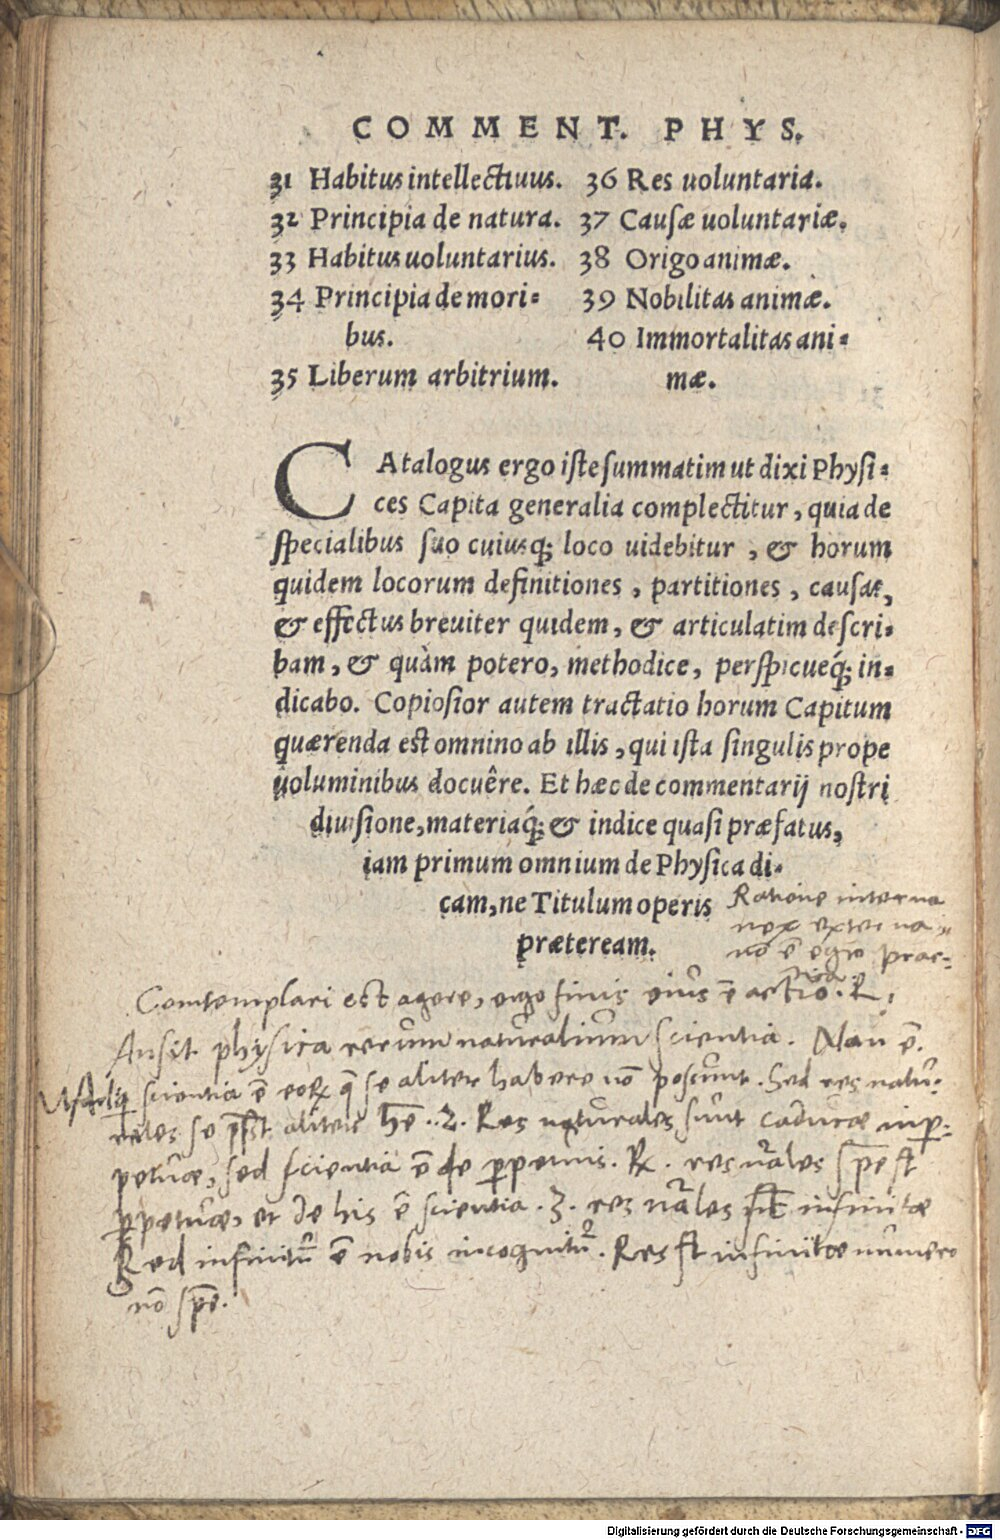 COMMENT. PHYS.
31 Habitus intellectiuus.
32 Principia de natura.
33 Habitus uoluntarius.
34 Principia de mori-
bus.
35 Liberum arbitrium.
36 Res uoluntaria.
37 Causæ uoluntariæ.
38 Origo animæ.
39 Nobilitas animæ.
40 Immortalitas ani-
mæ.
CAtalogus ergo iste summatim ut dixi Physi-
ces Capita generalia complectitur, quia de
specialibus suo cuiusq; loco uidebitur, & horum
quidem locorum definitiones, partitiones, causas,
& effectus breuiter quidem, & articulatim descri-
bam, & quàm potero, methodice, perspicueq́; in-
dicabo. Copiosior autem tractatio horum Capitum
quærenda est omnino ab illis, qui ista singulis prope
uoluminibus docuêre. Et hæc de commentarij nostri
diuisione, materiaq́; & indice quasi præfatus,
iam primum omnium de Physica di-
cam, ne Titulum operis
præteream.
Ratione interna
non externa
nō ē ergo prac-
tica
Contemplari est agere, ergo finis eius ē actio. R.
An sit physica rerum naturalium scientia. Nam ē.
scientia ē eoꝝ q̄ se aliter habere nō possunt. Sed res natu-
rales se pn̄t aliter hr̄e. 2. Res naturales sunt caducæ inp̱-
petuæ, sed scientia ē de p̱petuis. R. res nāles spē st̄
p̱petuæ, et de his ē scientia. 3. res nāles st̄ infinitæ
sed infinitū ē nobis incognitū. Res st̄ infinitæ numero
nō spē.
Digitalisierung gefördert durch die Deutsche Forschungsgemeinschaft - DFG